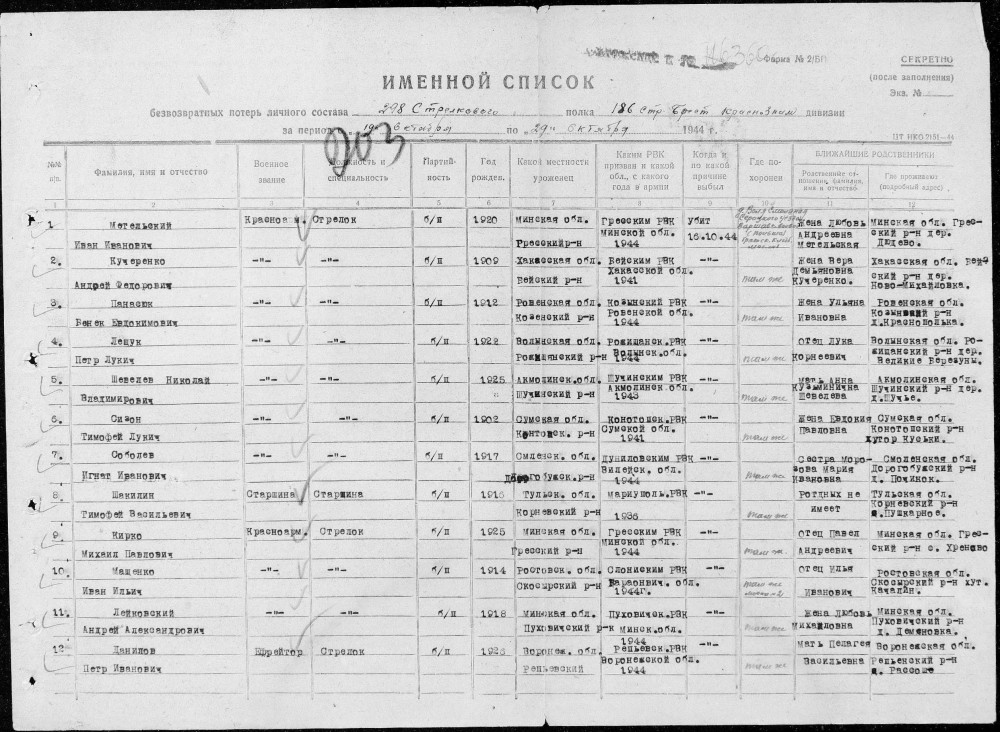 Форма № 2/БП
СЕКРЕТНО
(после заполнения)
Экз. №
ИМЕННОЙ СПИСОК
безвозвратных потерь личного состава 298 Стрелкового полка 186 стр. Брест Краснознам дивизии
за период 19 Октября по 29 Октября 1944 г.
203
ЦТ НКО 2151—44
№№ п/п.
Фамилия, имя и отчество
Военное звание
Должность и специальность
Партийность
Год рожден.
Какой местности уроженец
Каким РВК призван и какой обл., с какого года в армии
Когда и по какой причине выбыл
Где похоронен
БЛИЖАЙШИЕ РОДСТВЕННИКИ
Родственные отношения, фамилия, имя и отчество
Где проживают (подробный адрес)
1 2 3 4 5 6 7 8 9 10 11 12
1. Метельский Красноарм. Стрелок б/п 1920 Минская обл. Гресским РВК убит Жена Любовь Минская обл. Грес-
Иван Иванович Гресский р-н Минской обл. 1944 16.10.44 Андреевна Метельская ский р-н дер. Дюдево.
2. Кучеренко -"- -"- б/п 1909 Хакасская обл. Бейским РВК -"- Жена Вера Хакасская обл. Бей-
Андрей Федорович Бейский р-н Хакасской обл. 1941 там же Демьяновна Кучеренко. ский р-н дер. Ново-Михайловка.
3. Панасюк -"- -"- б/п 1912 Ровенская обл. Козынский РВК -"- Жена Ульяна Ровенская обл.
Венек Евдокимович Козенский р-н Ровенской обл. 1944 там же Ивановна Козынский р-н д.Краснополька.
4. Лещук -"- -"- б/п 1922 Волынская обл. Рожищанск.РВК -"- отец Лука Волынская обл. Ро-
Петр Лукич Рожищянский р-н Волынск.обл. 1944 там же Корнеевич жищанский р-н дер. Великие Березуны.
5. Шевелев Николай -"- -"- б/п 1925 Акмолинск.обл. Щучинским РВК -"- мать Анна Акмолинская обл.
Владимирович Щучинский р-н Акмолинск обл. 1943 там же Кузьминична Шевелева Щучинский р-н дер. д.Щучье.
6. Сизон -"- -"- б/п 1902 Сумская обл. Конотопск.РВК -"- Жена Евдокия Сумская обл.
Тимофей Лукич Контопск. р-н Сумской обл. 1941 там же Павловна Конотопский р-н хутор Куськи.
7. Соболев -"- -"- б/п 1917 Смленск. обл. Дуниловским РВК -"- Сестра Моро- Смоленская обл.
Игнат Иванович Дорогобужск.р-н Вилейск. обл. 1944 там же зова Мария Ивановна Дорогобужский р-н д. Починок.
8. Шакилин Старшина Старшина б/п 1915 Тульск. обл. Мариуполь.РВК -"- Ротдных не Тульская обл.
Тимофей Васильевич Корневский р-н 1936 там же имеет Корневский р-н д.Пушкарное.
9. Кирко Красноарм. Стрелок б/п 1925 Минская обл. Гресским РВК -"- отец Павел Минская обл. Грес-
Михаил Павлович Гресский р-н Минской обл. 1944 там ж. Андреевич ский р-н с. Хреново
10. Мащенко -"- -"- б/п 1914 Ростовск. обл. Слонимским РВК -"- отец Илья Ростовская обл.
Иван Ильич Скосырский р-н Баранвич. обл. 1944г. там же Иванович Скосырский р-н хут. Качалин.
11. Лейковский -"- -"- б/п 1918 Минская обл. Пуховическ.РВК -"- Жена Любовь Минская обл.
Андрей Александрович Пуховичский р-к Минск.обл. 1944 там же Михайловна Пуховичский р-н д. Демяновка.
12. Данилов Ефрейтор Стрелок б/п 1926 Воронеж. обл. Репьевск.РВК -"- мать Пелагея Воронежская обл.
Петр Иванович Репьевский Воронежской обл. 1944 там же Васильевна Репьенский р-н д. Рассоше